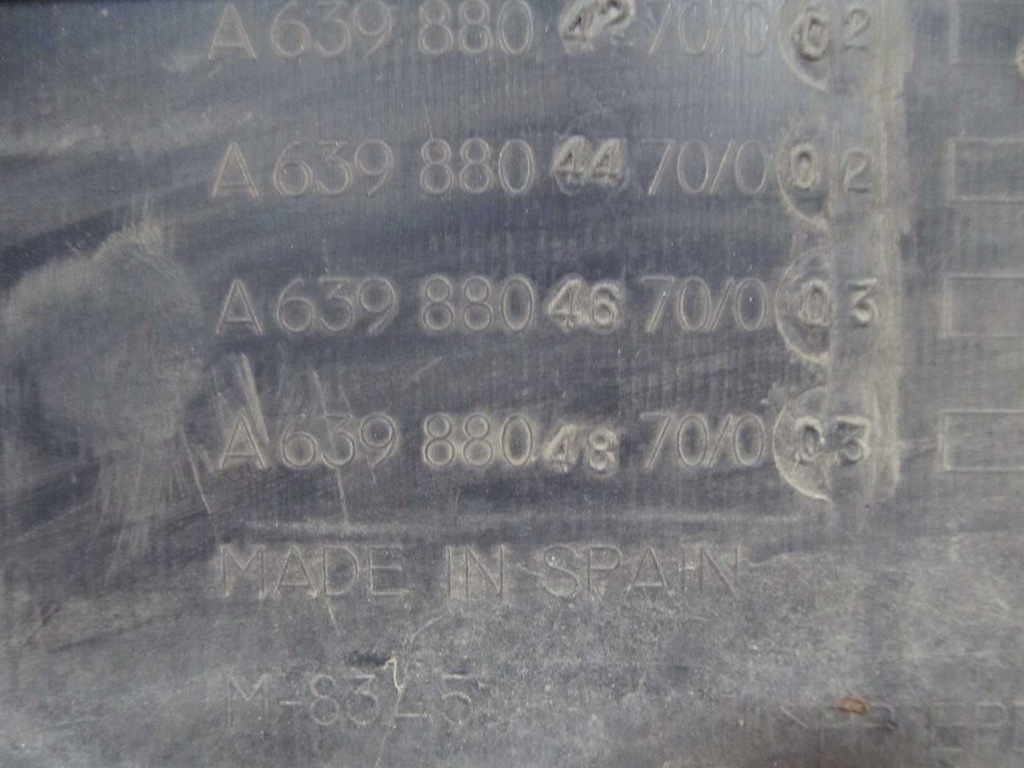 A 639 880 42 70/0 02
A 639 880 44 70/0 02
A 639 880 46 70/0 03
A 639 880 48 70/0 03
MADE IN SPAIN